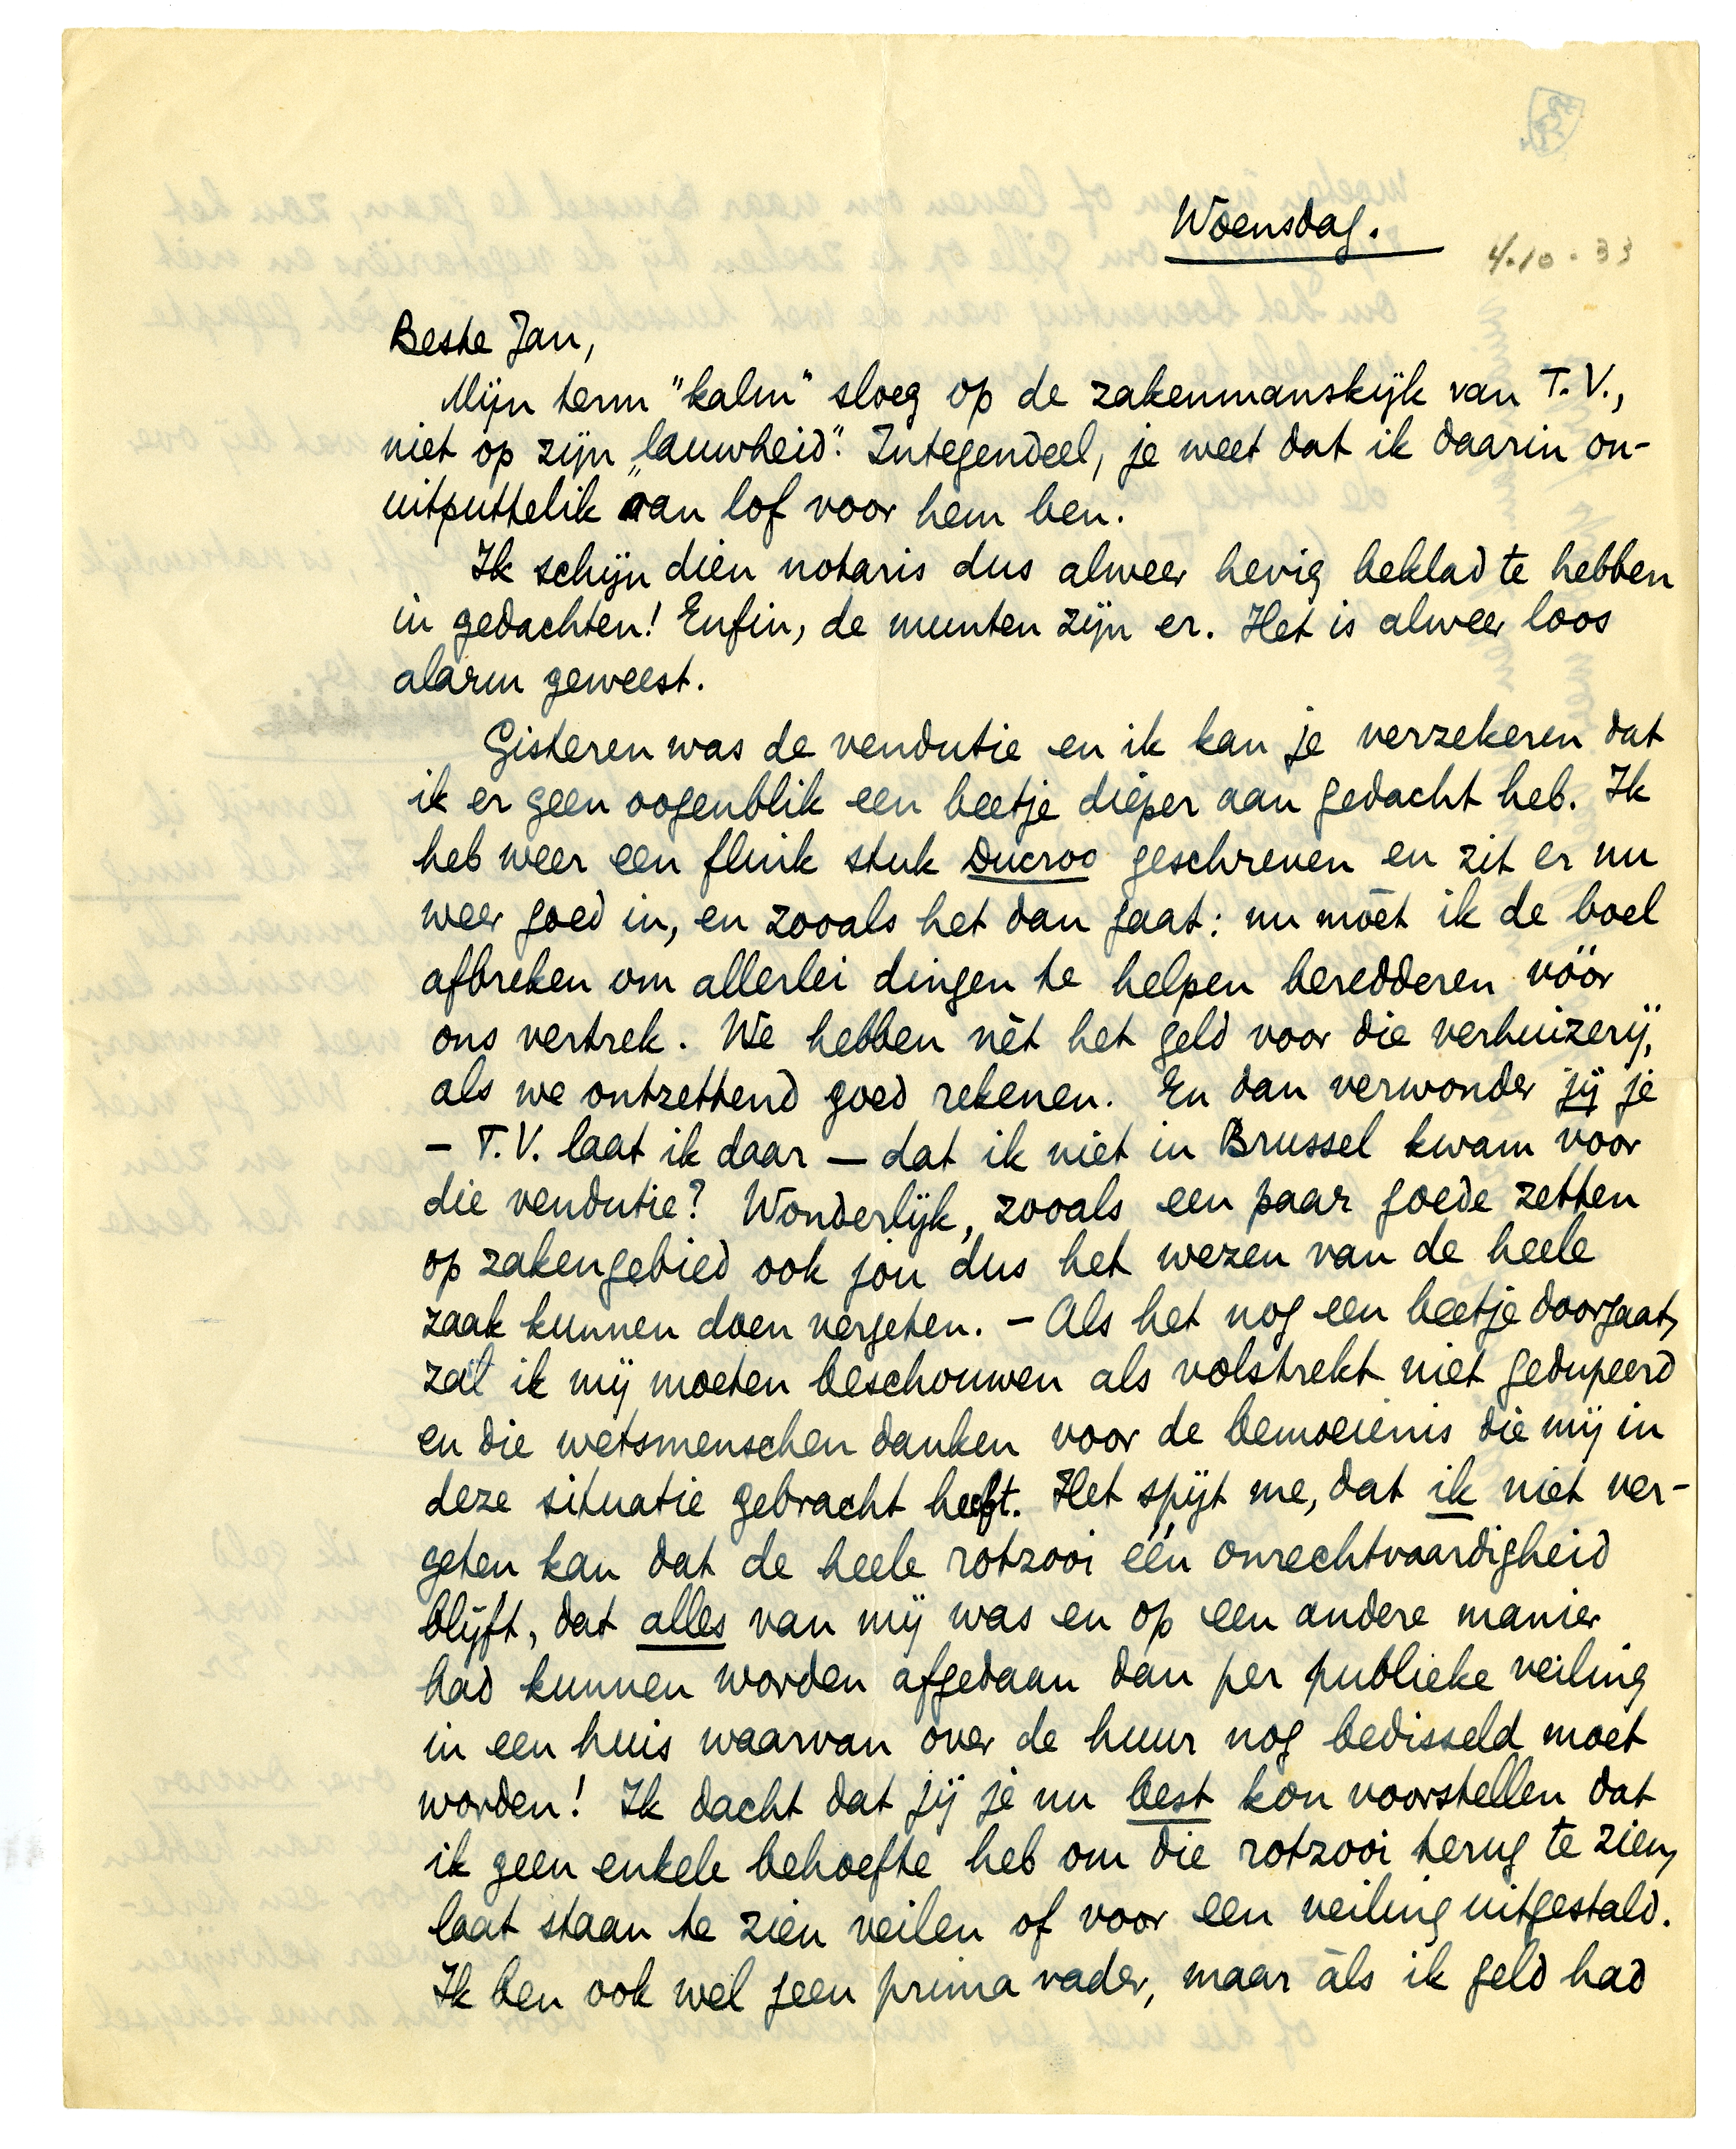 Woensdag.
4.10.33
Beste Jan,
Mijn term "kalm" sloeg op de zakenmanskijk van T.V.,
niet op zijn „lauwheid". Integendeel, je weet dat ik daarin on-
uitputtelik van lof voor hem ben.
Ik schijn dien notaris dus alweer hevig beklad te hebben
in gedachten! Enfin, de munten zijn er. Het is alweer loos
alarm geweest.
Gisteren was de vendutie en ik kan je verzekeren dat
ik er geen oogenblik een beetje dieper aan gedacht heb. Ik
heb weer een flink stuk Ducroo geschreven en zit er nu
weer goed in, en zooals het dan gaat: nu móet ik de boel
afbreken om allerlei dingen te helpen beredderen vóór
ons vertrek. We hebben nèt het geld voor die verhuizerij,
als we ontzettend goed rekenen. En dan verwonder jij je
— T.V. laat ik daar — dat ik niet in Brussel kwam voor
die vendutie? Wonderlijk, zooals een paar goede zetten
op zakengebied ook jou dus het wezen van de heele
zaak kunnen doen vergeten. — Als het nog een beetje doorgaat,
zal ik mij moeten beschouwen als volstrekt niet gedupeerd
en die wetsmenschen danken voor de bemoeienis die mij in
deze situatie gebracht heeft. Het spijt me, dat ik niet ver-
geten kan dat de heele rotzooi één onrechtvaardigheid
blijft, dat alles van mij was en op een andere manier
had kunnen worden afgedaan dan per publieke veiling
in een huis waarvan over de huur nog bedisseld moet
worden! Ik dacht dat jij je nu best kon voorstellen dat
ik geen enkele behoefte heb om die rotzooi terug te zien,
laat staan te zien veilen of voor een veiling uitgestald.
Ik ben ook wel geen prima vader, maar àls ik geld had